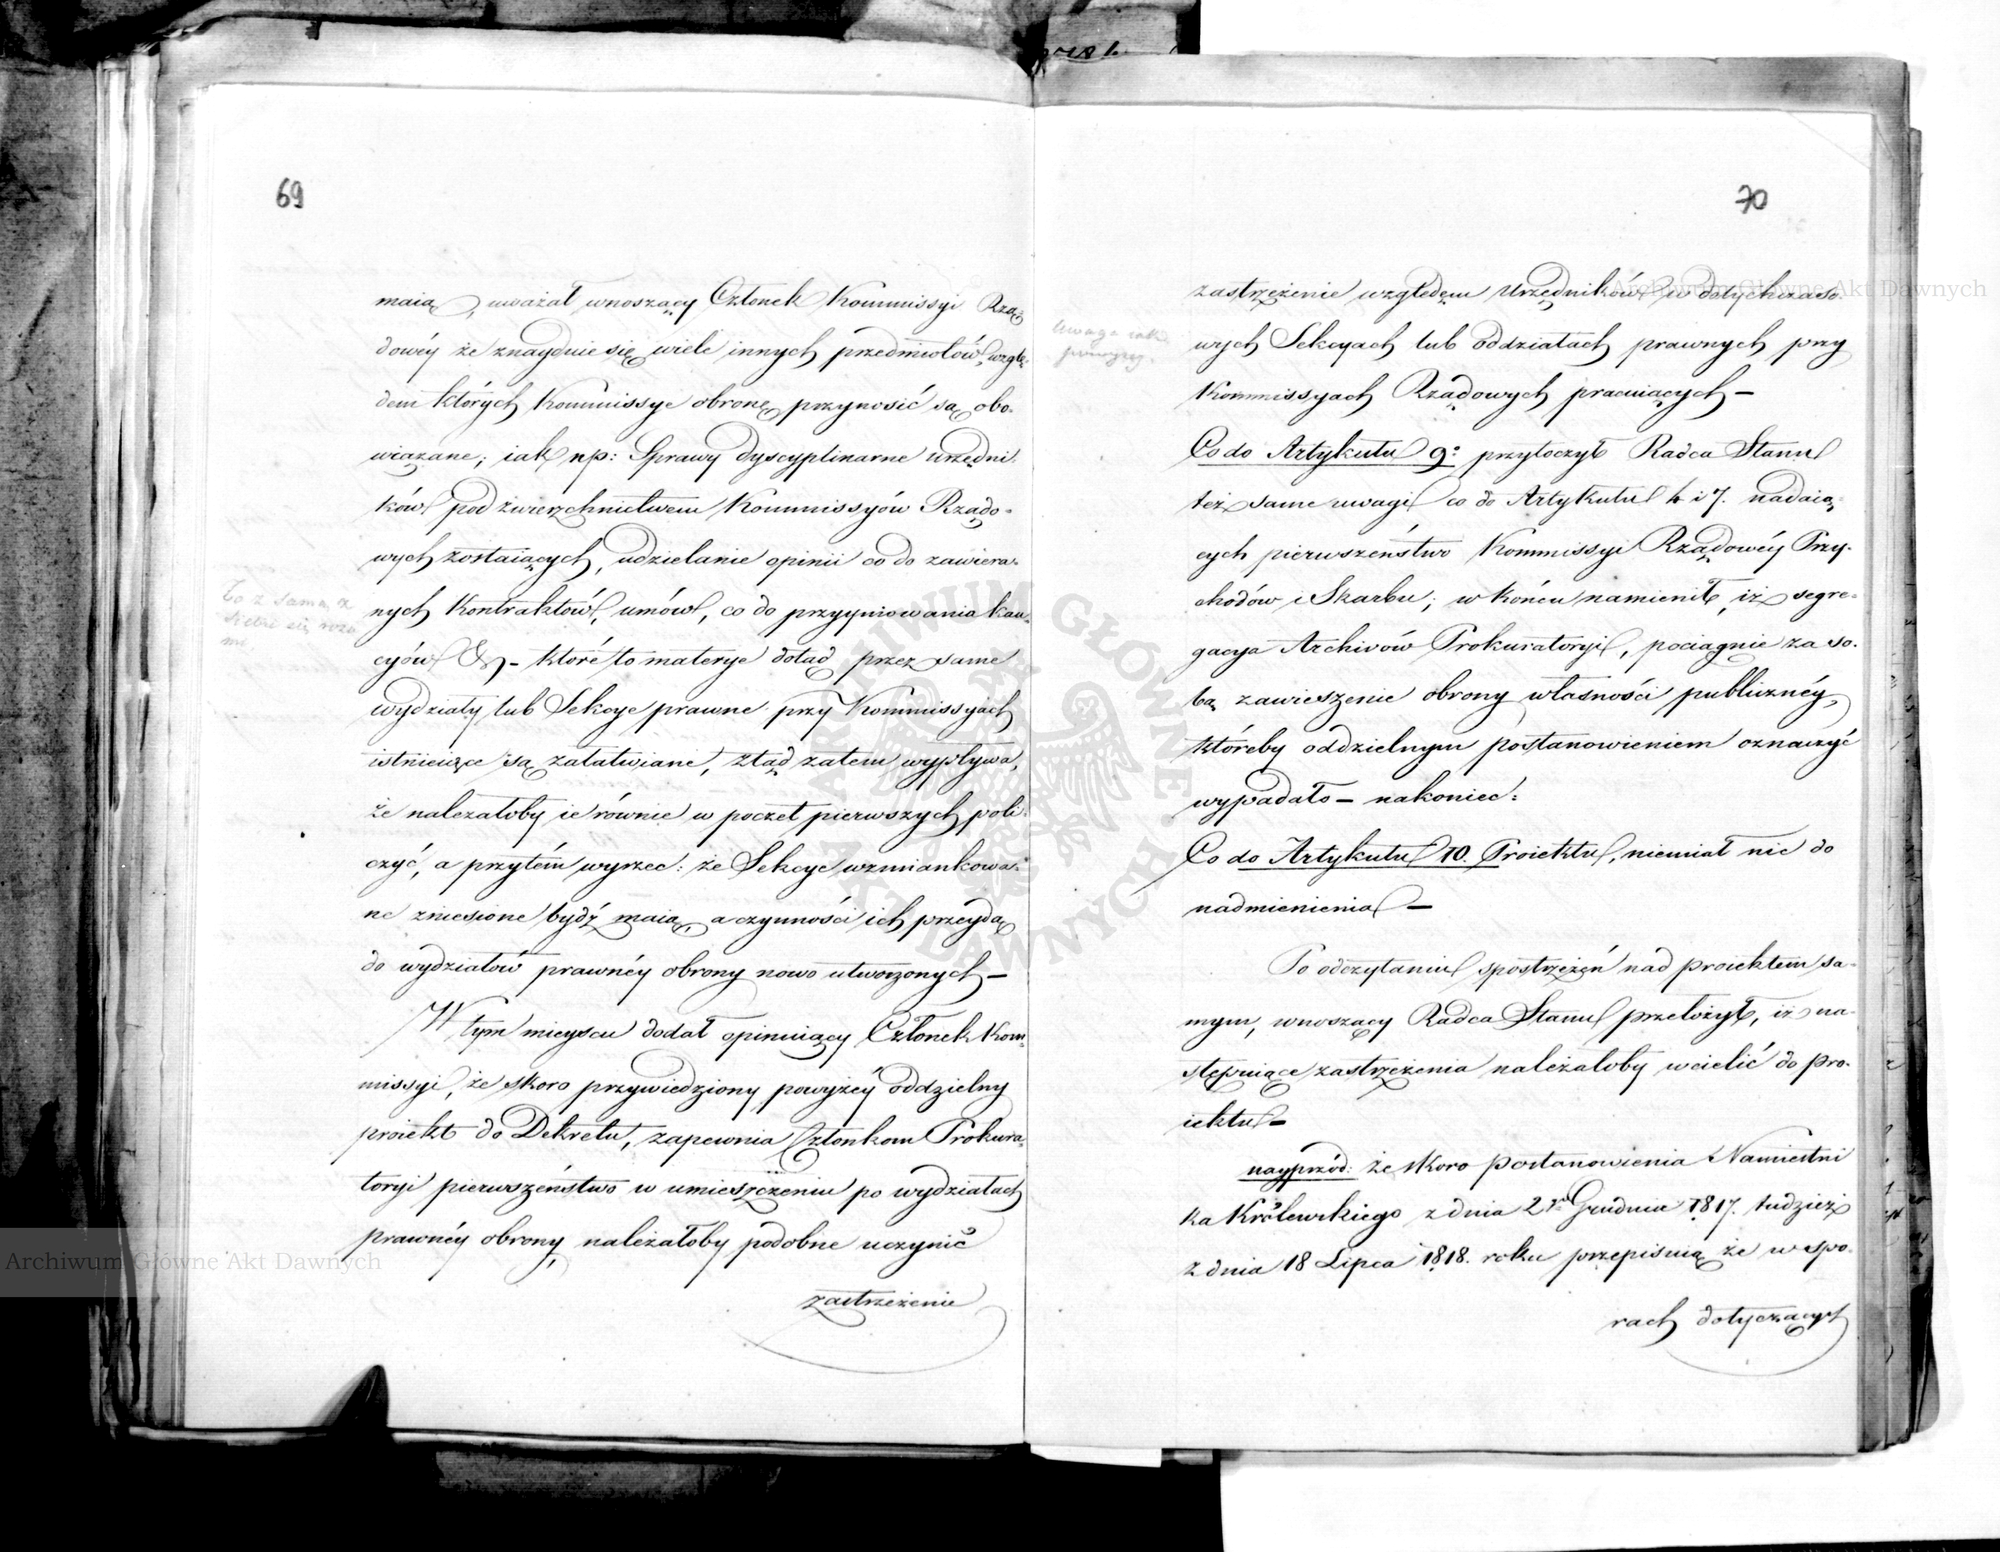 69
maią, uważał wnoszący Członek Kommissyi Rzą-
dowéy że znayduie się wiele innych przedmiotów, wzglę-
dem których Kommissye obronę przynosić są obo-
wiązane; iak np: Sprawy dyscyplinarne urzędni-
ków pod zwierzchnictwem Kommissyów Rządo-
wych zostaiących, udzielanie opinii co do zawiera-
nych Kontraktów, umów, co do przyymowania kau-
cyów &- które to materye dotąd przez same
wydziały lub Sekcye prawne przy Kommissyach
istnieiące są załatwiane, ztąd zatem wypływa,
że należałoby ie równie w poczet pierwszych poli-
czyć, a przytém wyrzec: że Sekcye wzmiankowa-
ne zniesione bydź maią, a czynności ich przeydą
do wydziałów prawnéy obrony nowo utworzonych –
W tym mieyscu dodał opiniuiący Członek Kom-
missyi, że skoro przywiedziony powyżéy oddzielny
proiekt do Dekretu, zapewnia Członkom Prokura-
toryi pierwszeństwo w umieszczeniu po wydziałach
prawnéy obrony, należałoby podobne uczynić
zastrzeżenie
To z samą
się rozu
mie
70
zastrzeżenie względem Urzędników w dotychczaso-
wych Sekcyach lub oddziałach prawnych przy
Kommissyach Rządowych pracuiących –
Co do Artykułu 9º przytoczył Radca Stanu
też same uwagi co do Artykułu 4 i 7. nadaią-
cych pierwszeństwo Kommissyi Rządowéy Przy-
chodów i Skarbu; w końcu namienił, iż segre-
gacya Archivów Prokuratoryi, pociągnie za so-
bą zawieszenie obrony własności publicznéy,
któreby oddzielnym postanowieniem oznaczyć
wypadało – nakoniec:
Co do Artykułu 10. Proiektu, niemiał nic do
nadmienienia –
Po odczytaniu spostrzeżeń nad proiektem sa-
mym, wnoszący Radca Stanu przełożył, iż na-
stępuiące zastrzeżenia należałoby wcielić do pro-
iektu –
nayprzód: że skoro Postanowienia Namiestni
ka Królewskiego z dnia 2go Grudnia 1817. tudzież
z dnia 18 Lipca 1818. roku przepisuią że w spo-
rach dotyczących
Uwaga iak
powyżey.
Archiwum Główne Akt Dawnych
Archiwum Główne Akt Dawnych
ARCHIWUM GŁÓWNE AKT DAWNYCH